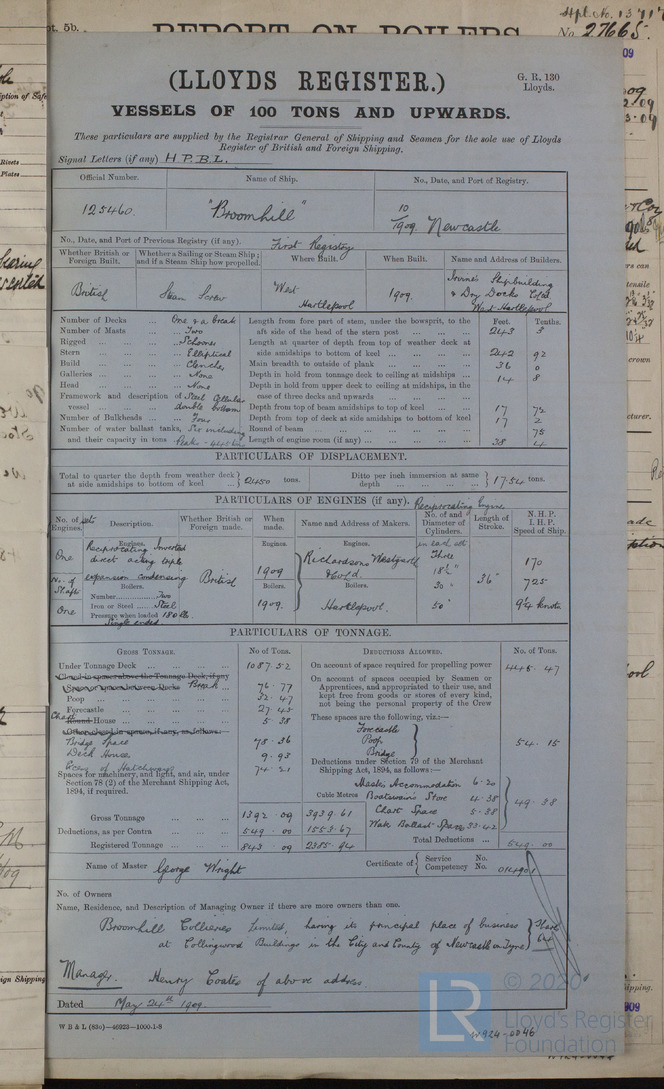 REPORT ON BOILERS
No. 27665.
(LLOYDS REGISTER.)
G. R. 130
Lloyds.
VESSELS OF 100 TONS AND UPWARDS.
These particulars are supplied by the Registrar General of Shipping and Seamen for the sole use of Lloyds
Register of British and Foreign Shipping.
Signal Letters (if any) H P. B. L.
Official Number. Name of Ship. No., Date, and Port of Registry.
125460. "Broomhill" 10/1909 Newcastle
No., Date, and Port of Previous Registry (if any). First Registry
Whether British or Foreign Built. Whether a Sailing or Steam Ship; and if a Steam Ship how propelled. Where Built. When Built. Name and Address of Builders.
British Steam Screw West Hartlepool 1909. Irvine's Shipbuilding & Dry Docks Co Ld West Hartlepool
Number of Decks ... One & a break
Number of Masts ... Two
Rigged ... Schooner
Stern ... Elliptical
Build ... Clencher
Galleries ... None
Head ... None
Framework and description of vessel ... Steel Cellular double bottom
Number of Bulkheads ... Four
Number of water ballast tanks, and their capacity in tons Six including Peaks - 445 tons
Feet. Tenths.
Length from fore part of stem, under the bowsprit, to the aft side of the head of the stern post ... 243 3
Length at quarter of depth from top of weather deck at side amidships to bottom of keel ... 242 92
Main breadth to outside of plank ... 36 0
Depth in hold from tonnage deck to ceiling at midships ... 14 8
Depth in hold from upper deck to ceiling at midships, in the case of three decks and upwards ...
Depth from top of beam amidships to top of keel ... 17 72
Depth from top of deck at side amidships to bottom of keel 17 2
Round of beam ... 75
Length of engine room (if any) ... 38 4
PARTICULARS OF DISPLACEMENT.
Total to quarter the depth from weather deck at side amidships to bottom of keel ... 2450 tons. Ditto per inch immersion at same depth ... 17.54 tons.
PARTICULARS OF ENGINES (if any). Reciprocating Engine
No. of sets Engines. Description. Whether British or Foreign made. When made. Name and Address of Makers. No. of and Diameter of Cylinders. Length of Stroke. N. H. P. I. H. P. Speed of Ship.
One
Engines. Reciprocating Inverted direct acting triple expansion condensing
British
Engines. 1909
Engines. Richardsons Westgarth & Co Ld.
in each set Three
18½"
30 "
50"
36"
170
725
9¼ knots.
No. of Shafts One
Boilers.
Number ... Two
Iron or Steel ... Steel
Pressure when loaded 180 lbs.
Single ended
Boilers. 1909.
Boilers. Hartlepool.
PARTICULARS OF TONNAGE.
GROSS TONNAGE. No of Tons. DEDUCTIONS ALLOWED. No. of Tons.
Under Tonnage Deck ... 1087.52
Closed-in spaces above the Tonnage Deck, if any
Space or spaces between Decks Break ... 76.77
Poop ... 32.47
Forecastle ... 27.45
Round House Chart ... 5.38
Other closed-in spaces, if any, as follows:—
Bridge Space 78.36
Deck House 9.93
Excess of Hatchways 74.21
Spaces for machinery, and light, and air, under Section 78 (2) of the Merchant Shipping Act, 1894, if required.
Cubic Metres
Gross Tonnage 1392.09 3939.61
Deductions, as per Contra ... 549.00 1553.67
Registered Tonnage ... 843.09 2385.94
On account of space required for propelling power 445.47
On account of spaces occupied by Seamen or Apprentices, and appropriated to their use, and kept free from goods or stores of every kind, not being the personal property of the Crew
These spaces are the following, viz.:—
Forecastle
Poop
Bridge
54.15
Deductions under Section 79 of the Merchant Shipping Act, 1894, as follows:—
Masters Accommodation 6.20
Boatswain's Store 4.38
Chart Space 5.38
Water Ballast Spaces 33.42
49.38
Total Deductions ... 549.00
Name of Master George Wright
Certificate of Service No. Competency No.
No. of Owners
Name, Residence, and Description of Managing Owner if there are more owners than one.
Broomhill Collieries Limited, having its principal place of business
at Collingwood Buildings in the City and County of Newcastle on Tyne
Manager. Henry Coates of above address.
Dated May 24th 1909.
W B & L (83o)—46223—1000-1-8
W924-0046
© 2020
LR
Lloyd's Register
Foundation